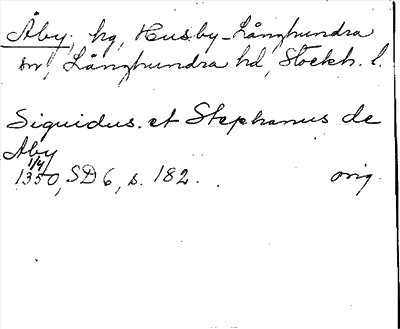 Åby, hg, Husby-Långhundra
sn, Långhundra hd, Stockh. l.
Siguidus et Stephanus de
Aby
1/4
1350, SD 6, s. 182. orig.